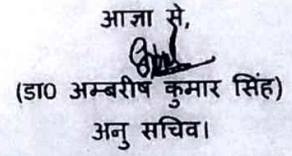 आज्ञा से,
(डा0 अम्बरीष कुमार सिंह)
अनु सचिव।